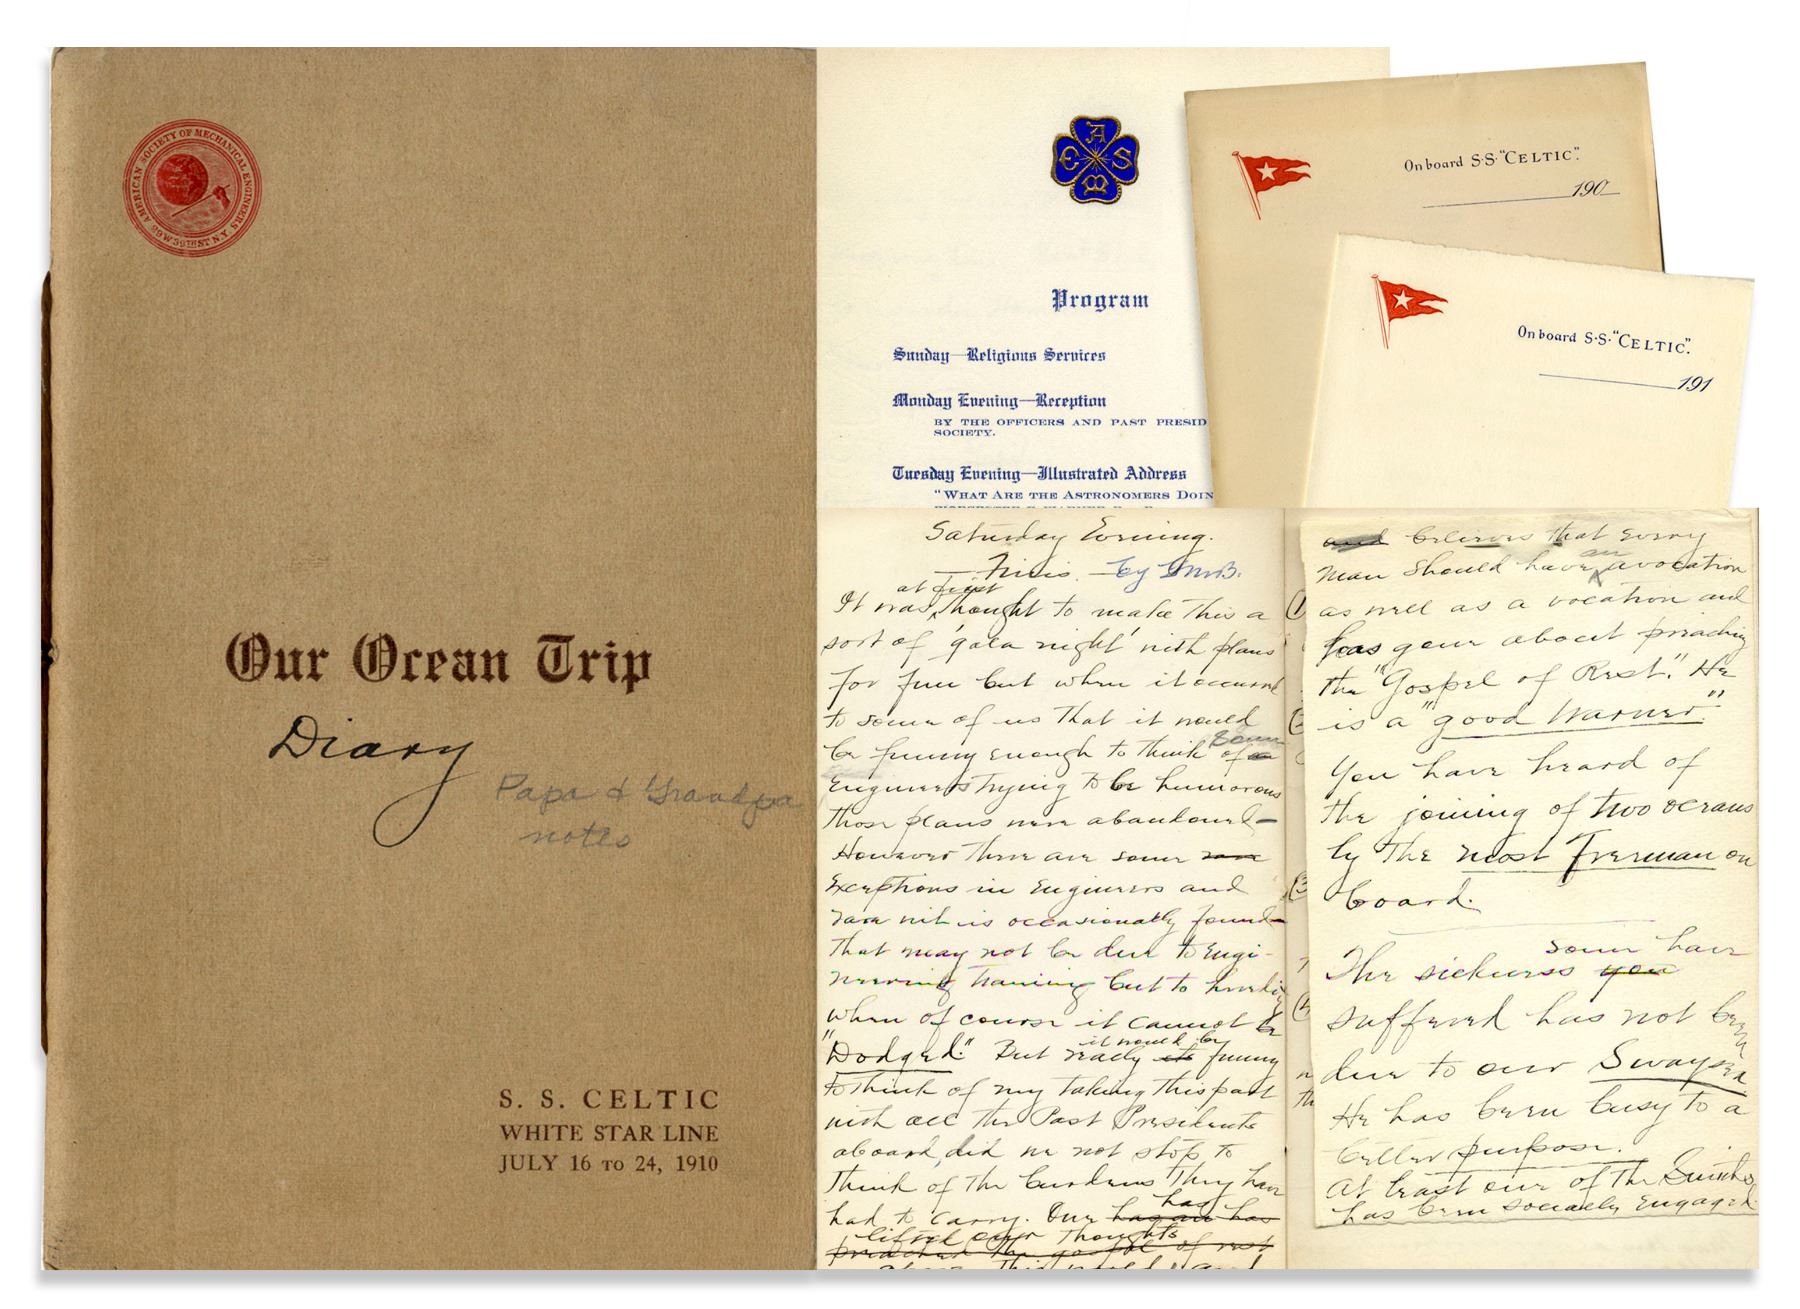 AMERICAN SOCIETY OF MECHANICAL ENGINEERS
29 W 39TH ST N.Y.
Our Ocean Trip
Diary
Papa & Grandpa
notes
S. S. CELTIC
WHITE STAR LINE
JULY 16 TO 24, 1910
A
E S
M
Program
Sunday—Religious Services
Monday Evening—Reception
BY THE OFFICERS AND PAST PRESID
SOCIETY.
Tuesday Evening—Illustrated Address
"WHAT ARE THE ASTRONOMERS DOIN
On board S.S. "CELTIC".
190
On board S.S. "CELTIC".
191
Saturday Evening.
Finis. by
at first
It was thought to make this a
sort of 'gala night' with plans
for fun but when it occurred
to some of us that it would
be funny enough to think of some
Engineers trying to be humorous
those plans were abandoned—
However there are some rare
exceptions in Engineers and
rare wit is occasionally found—
that may not be due to Engi-
neering training but to heredity
when of course it cannot be
"Dodged." But really it would be funny
to think of my taking this part
with all the Past Presidents
aboard, did we not stop to
think of the burdens they have
had to carry. One has
lifted our thoughts
preached the gospel of rest
and believes that every
man should have an avocation
as well as a vocation and
has gone about preaching
the "Gospel of Rest." He
is a "good Warner"
You have heard of
the joining of two oceans
by the most Freeman on
board.
The sickness some have
suffered has not been
due to our Swaysea
He has been busy to a
better purpose.
At least one of the Smiths
has been socially engaged